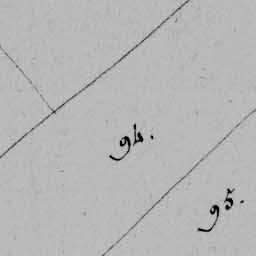 94.
95.